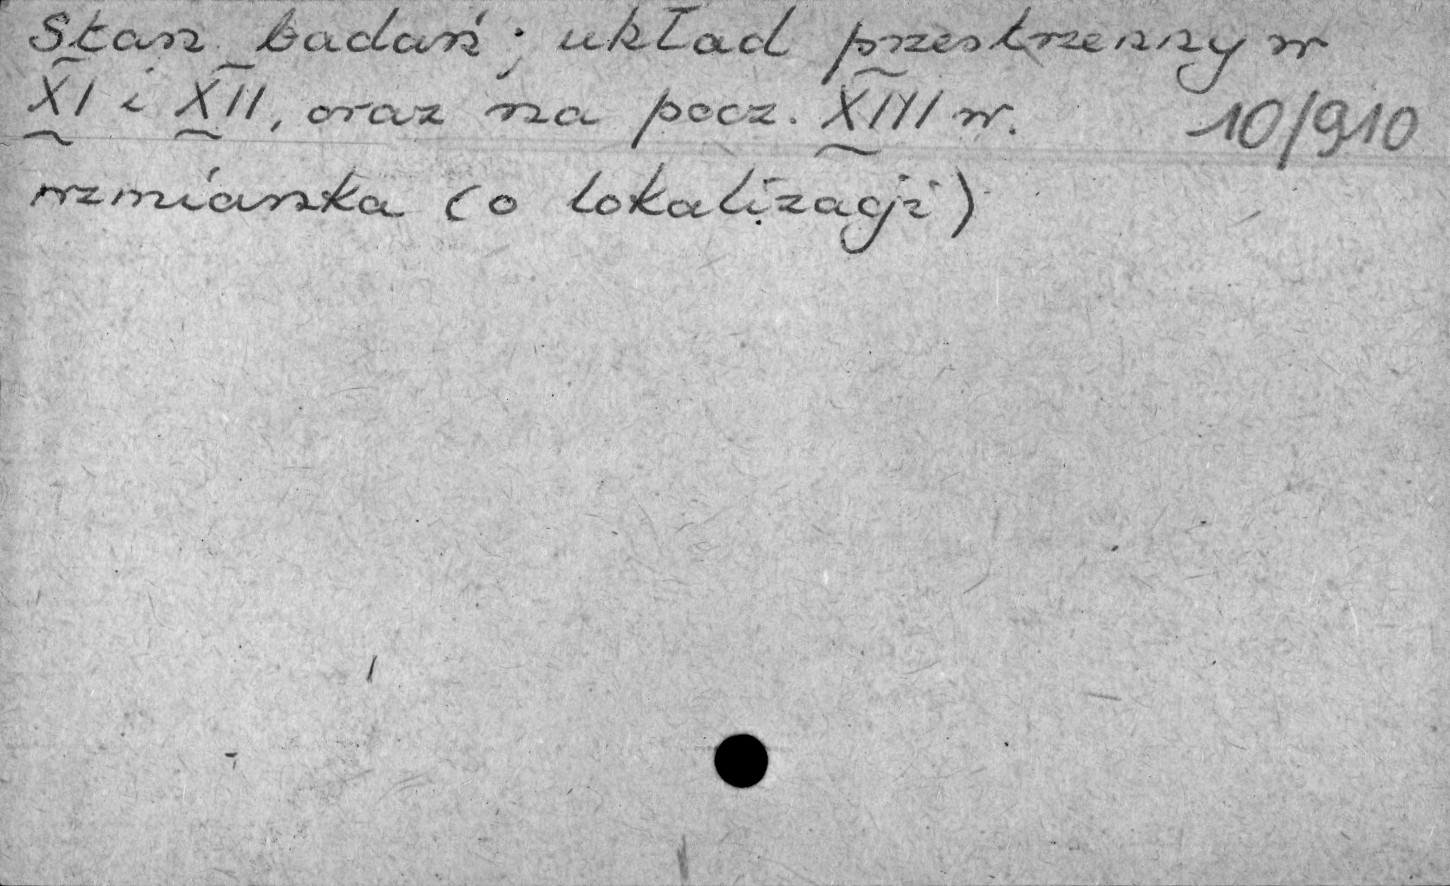 Stan badań; układ przestrzenny w
XI i XII, oraz na pocz. XIII w. 10/910
wzmianka (o lokalizacji)